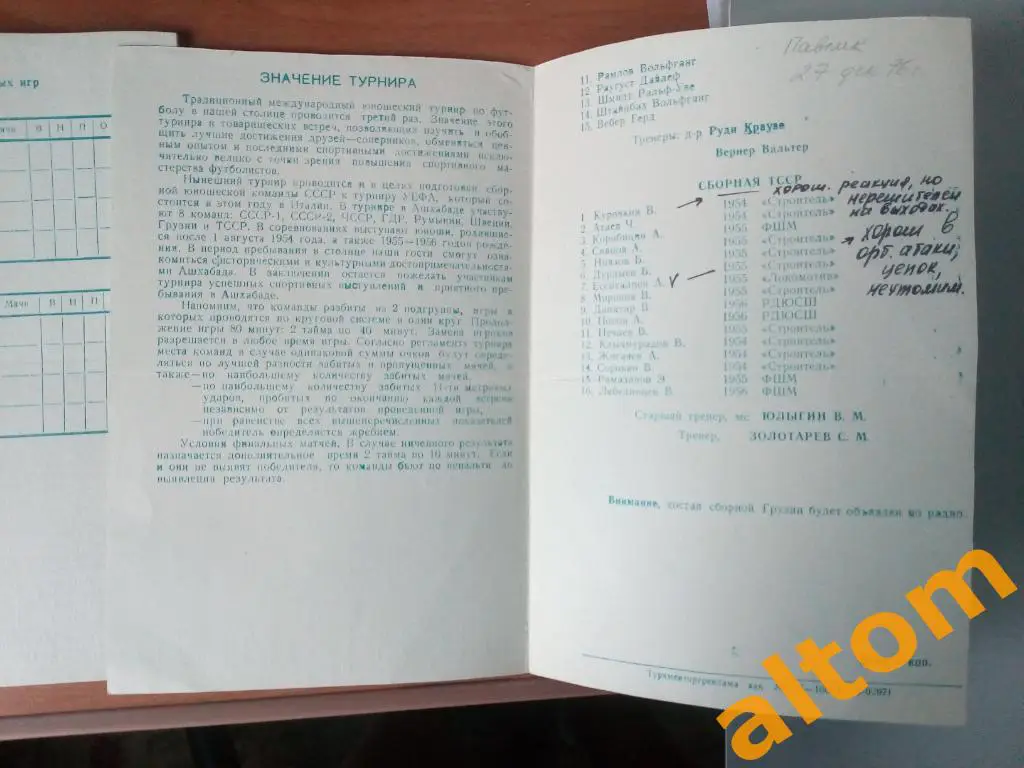 ых игр
Мячи В Н П О
Мячи В Н П О
ЗНАЧЕНИЕ ТУРНИРА
Традиционный международный юношеский турнир по фут-
болу в нашей столице проводится третий раз. Значение этого
турнира и товарищеских встреч, позволяющих изучить и обоб-
щить лучшие достижения друзей—соперников, обменяться цен-
ным опытом и последними спортивными достижениями исклю-
чительно велико с точки зрения повышения спортивного ма-
стерства футболистов.
Нынешний турнир проводится и в целях подготовки сбор-
ной юношеской команды СССР к турниру УЕФА, который со-
стоится в этом году в Италии. В турнире в Ашхабаде участву-
ют 8 команд: СССР-1, СССР-2, ЧССР, ГДР, Румынии, Швеции,
Грузии и ТССР. В соревнованиях выступают юноши, родившие-
ся после 1 августа 1954 года, а также 1955—1956 годов рожде-
ния. В период пребывания в столице наши гости смогут озна-
комиться с историческими и культурными достопримечательностя-
ми Ашхабада. В заключении остается пожелать участникам
турнира успешных спортивных выступлений и приятного пре-
бывания в Ашхабаде.
Напомним, что команды разбиты на 2 подгруппы, игры в
которых проводятся по круговой системе в один круг. Продол-
жение игры 80 минут: 2 тайма по 40 минут. Замена игроков
разрешается в любое время игры. Согласно регламенту турнира
места команд в случае одинаковой суммы очков будут опреде-
ляться по лучшей разности забитых и пропущенных мячей, а
также—по наибольшему количеству забитых мячей.
—по наибольшему количеству забитых 11-ти метровых
ударов, пробитых по окончанию каждой встречи
независимо от результатов проведенной игры,
—при равенстве всех вышеперечисленных показателей
победитель определяется жребием.
Условия финальных матчей. В случае ничейного результата
назначается дополнительное время 2 тайма по 10 минут. Если
и они не выявят победителя, то команды бьют по пенальти до
выявления результата.
Павлик
27 дек 76 г
11. Рамлов Вольфганг
12. Раугуст Дайлеф
13. Шмидт Ральф-Уве
14. Штайнбах Вольфганг
15. Вебер Герд
Тренеры: д-р Руди Краузе
Вернер Вальтер
СБОРНАЯ ТССР
1 Куровкин В. 1954 «Строитель»
2 Атаев Ч. 1954 «Строитель»
3 Коробицин А. 1955 ФШМ
4 1955 «Строитель»
5 1955 «Строитель»
6. Дурдыев Б. 1955 «Строитель»
7 А. 1955 «Локомотив»
8 Миронов В. 1955 «Строитель»
9 В. 1956 РДЮСШ
10 Попов А. 1956 РДЮСШ
11 Нечаев В. 1955 «Строитель»
12. Клычмурадов В. 1954 «Строитель»
13. А. 1954 «Строитель»
14. Сорокин В. 1954 «Строитель»
15 Рамазанов Э. 1955 ФШМ
16. Лебединцев В. 1956 ФШМ
хорош. реакция, но
нерешителен
на выходах.
хорош в
орг. атаки,
цепок,
неутомим.
Старший тренер, мс ЮЛЫГИН В. М.
Тренер, ЗОЛОТАРЕВ С. М.
Внимание, состав сборной Грузии будет объявлен по радио.
коп.
Туркменторгреклама зак
altom